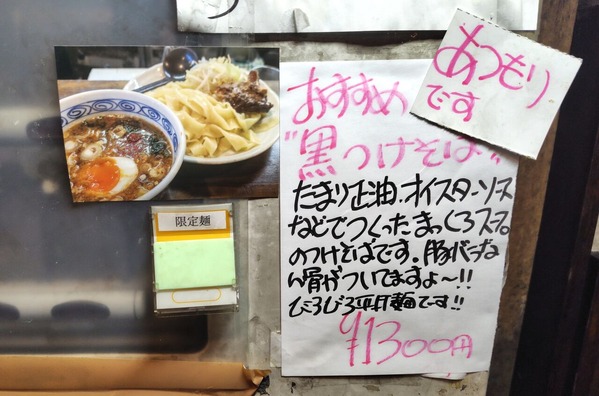 あつもり
です
おすすめ
"黒つけそば"
たまり正油、オイスターソース
などでつくったまっくろスープ
のつけそばです。豚バラなん
骨がついてますよ〜!!
びろびろ平打麺です!!
¥1300円
限定麺